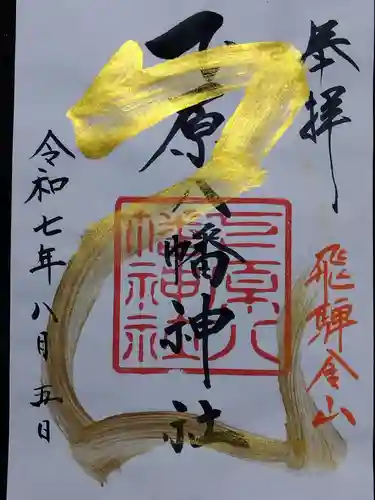 奉拝
飛騨金山
下原八幡神社
下原八幡神社
令和七年八月五日